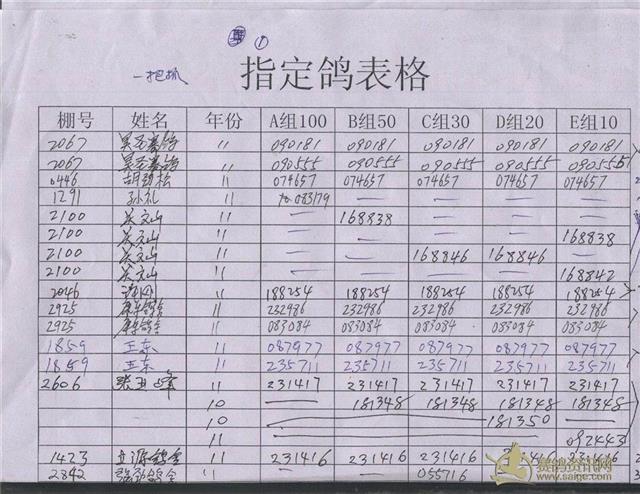 ①
一把抓
指定鸽表格
棚号 姓名 年份 A组100 B组50 C组30 D组20 E组10
2067 11 090181 090181 090181 090181 090181
2067 11 090555 090555 090555 090555 090555
0446 胡劲松 11 074657 074657 074657 074657 074657
1291 孙礼 11 083179 — — — —
2100 吴文山 11 — 168838 — — —
2100 吴文山 11 — — — — 168838
2100 吴文山 11 — — 168846 168846 —
2100 吴文山 11 — — — — 168842
2046 11 188254 188254 188254 188254 188254
2925 11 232986 232986 232986 232986 232986
2925 11 083084 083084 083084 083084 083084
1859 王东 11 087977 087977 087977 087977 087977
1859 王东 11 235711 235711 235711 235711 235711
2606 张卫峰 11 231417 231417 231417 231417 231417
10 — 181348 181348 181348 181348
10 — 181350 —
11 — 092443
1423 立源鸽舍 11 231416 231416 231416 231416 231416
2842 11 — — 055716 — —
赛鸽资讯网
www.saige.com